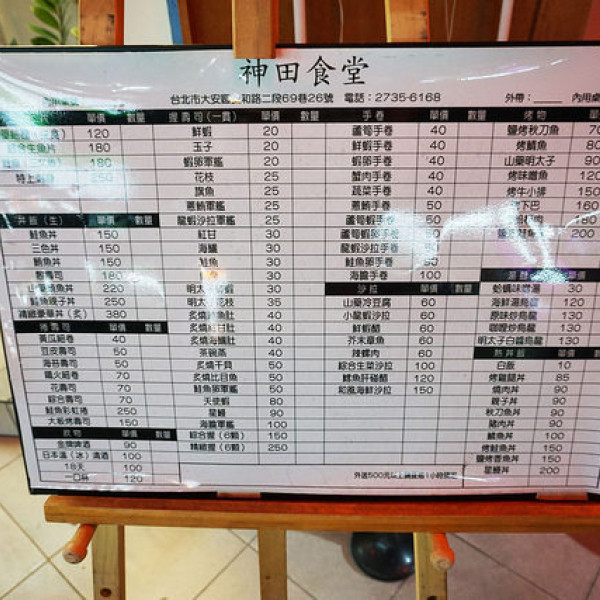 神田食堂
台北市大安區 和路二段69巷26號 電話：2735-6168 外帶：____ 內用桌
單價 數量
120
綜合生魚片 180
180
特上 250
丼飯（生） 單價 數量
鮭魚丼 150
三色丼 150
鮪魚丼 150
散壽司 180
山藥鮪魚丼 220
鮭魚親子丼 250
精緻豪華丼（炙） 380
捲壽司 單價 數量
黃瓜細卷 40
豆皮壽司 50
海苔壽司 50
鐵火細卷 70
花壽司 70
綜合壽司 70
鮭魚彩虹捲 250
大阪烤壽司 150
飲物 單價 數量
金牌啤酒 90
日本溫（冰）清酒 100
18天 100
一口杯 120
握壽司（一貫） 單價 數量
鮮蝦 20
玉子 20
蝦卵軍艦 20
花枝 25
旗魚 25
蔥鮪軍艦 25
龍蝦沙拉軍艦 25
紅甘 30
海鱺 30
鮭魚 30
明太 蝦 30
明太 花枝 35
炙燒鮭魚肚 40
炙燒紅甘肚 40
炙燒海鱺肚 40
茶碗蒸 40
炙燒干貝 50
炙燒比目魚 50
鮭魚卵軍艦 50
天使蝦 80
星鰻 90
海膽軍艦 100
綜合握（6顆） 150
精緻握（6顆） 250
手卷 單價 數量
蘆筍手卷 40
鮮蝦手卷 40
蝦卵手卷 40
蟹肉手卷 40
蔬菜手卷 40
蔥鮪手卷 50
蘆筍蝦手卷 50
蘆筍蝦卵手卷
龍蝦沙拉手卷
鮭魚卵手卷 90
海膽手卷 100
沙拉 單價 數量
山藥冷豆腐 60
小龍蝦沙拉 60
鮮蝦醋 60
芥末章魚 60
辣螺肉 60
綜合生菜沙拉 100
鱈魚肝碰醋 120
和風海鮮沙拉 150
烤物 單價
鹽烤秋刀魚 70
烤鯖魚 80
山藥明太子 90
烤味噌魚 120
烤牛小排 150
烤下巴 160
180
200
湯 單價 數量
蛤蠣味噌湯 30
海鮮湯烏龍 120
原味炒烏龍 130
咖哩炒烏龍 130
明太子白醬烏龍 130
熱丼飯 單價 數
白飯 10
烤雞腿丼 85
燒肉丼 90
親子丼 90
秋刀魚丼 90
豬肉丼 90
鯖魚丼 100
烤鮭魚丼 150
鹽烤香魚丼 150
星鰻丼 200
外送500元以上請提前1小時預定